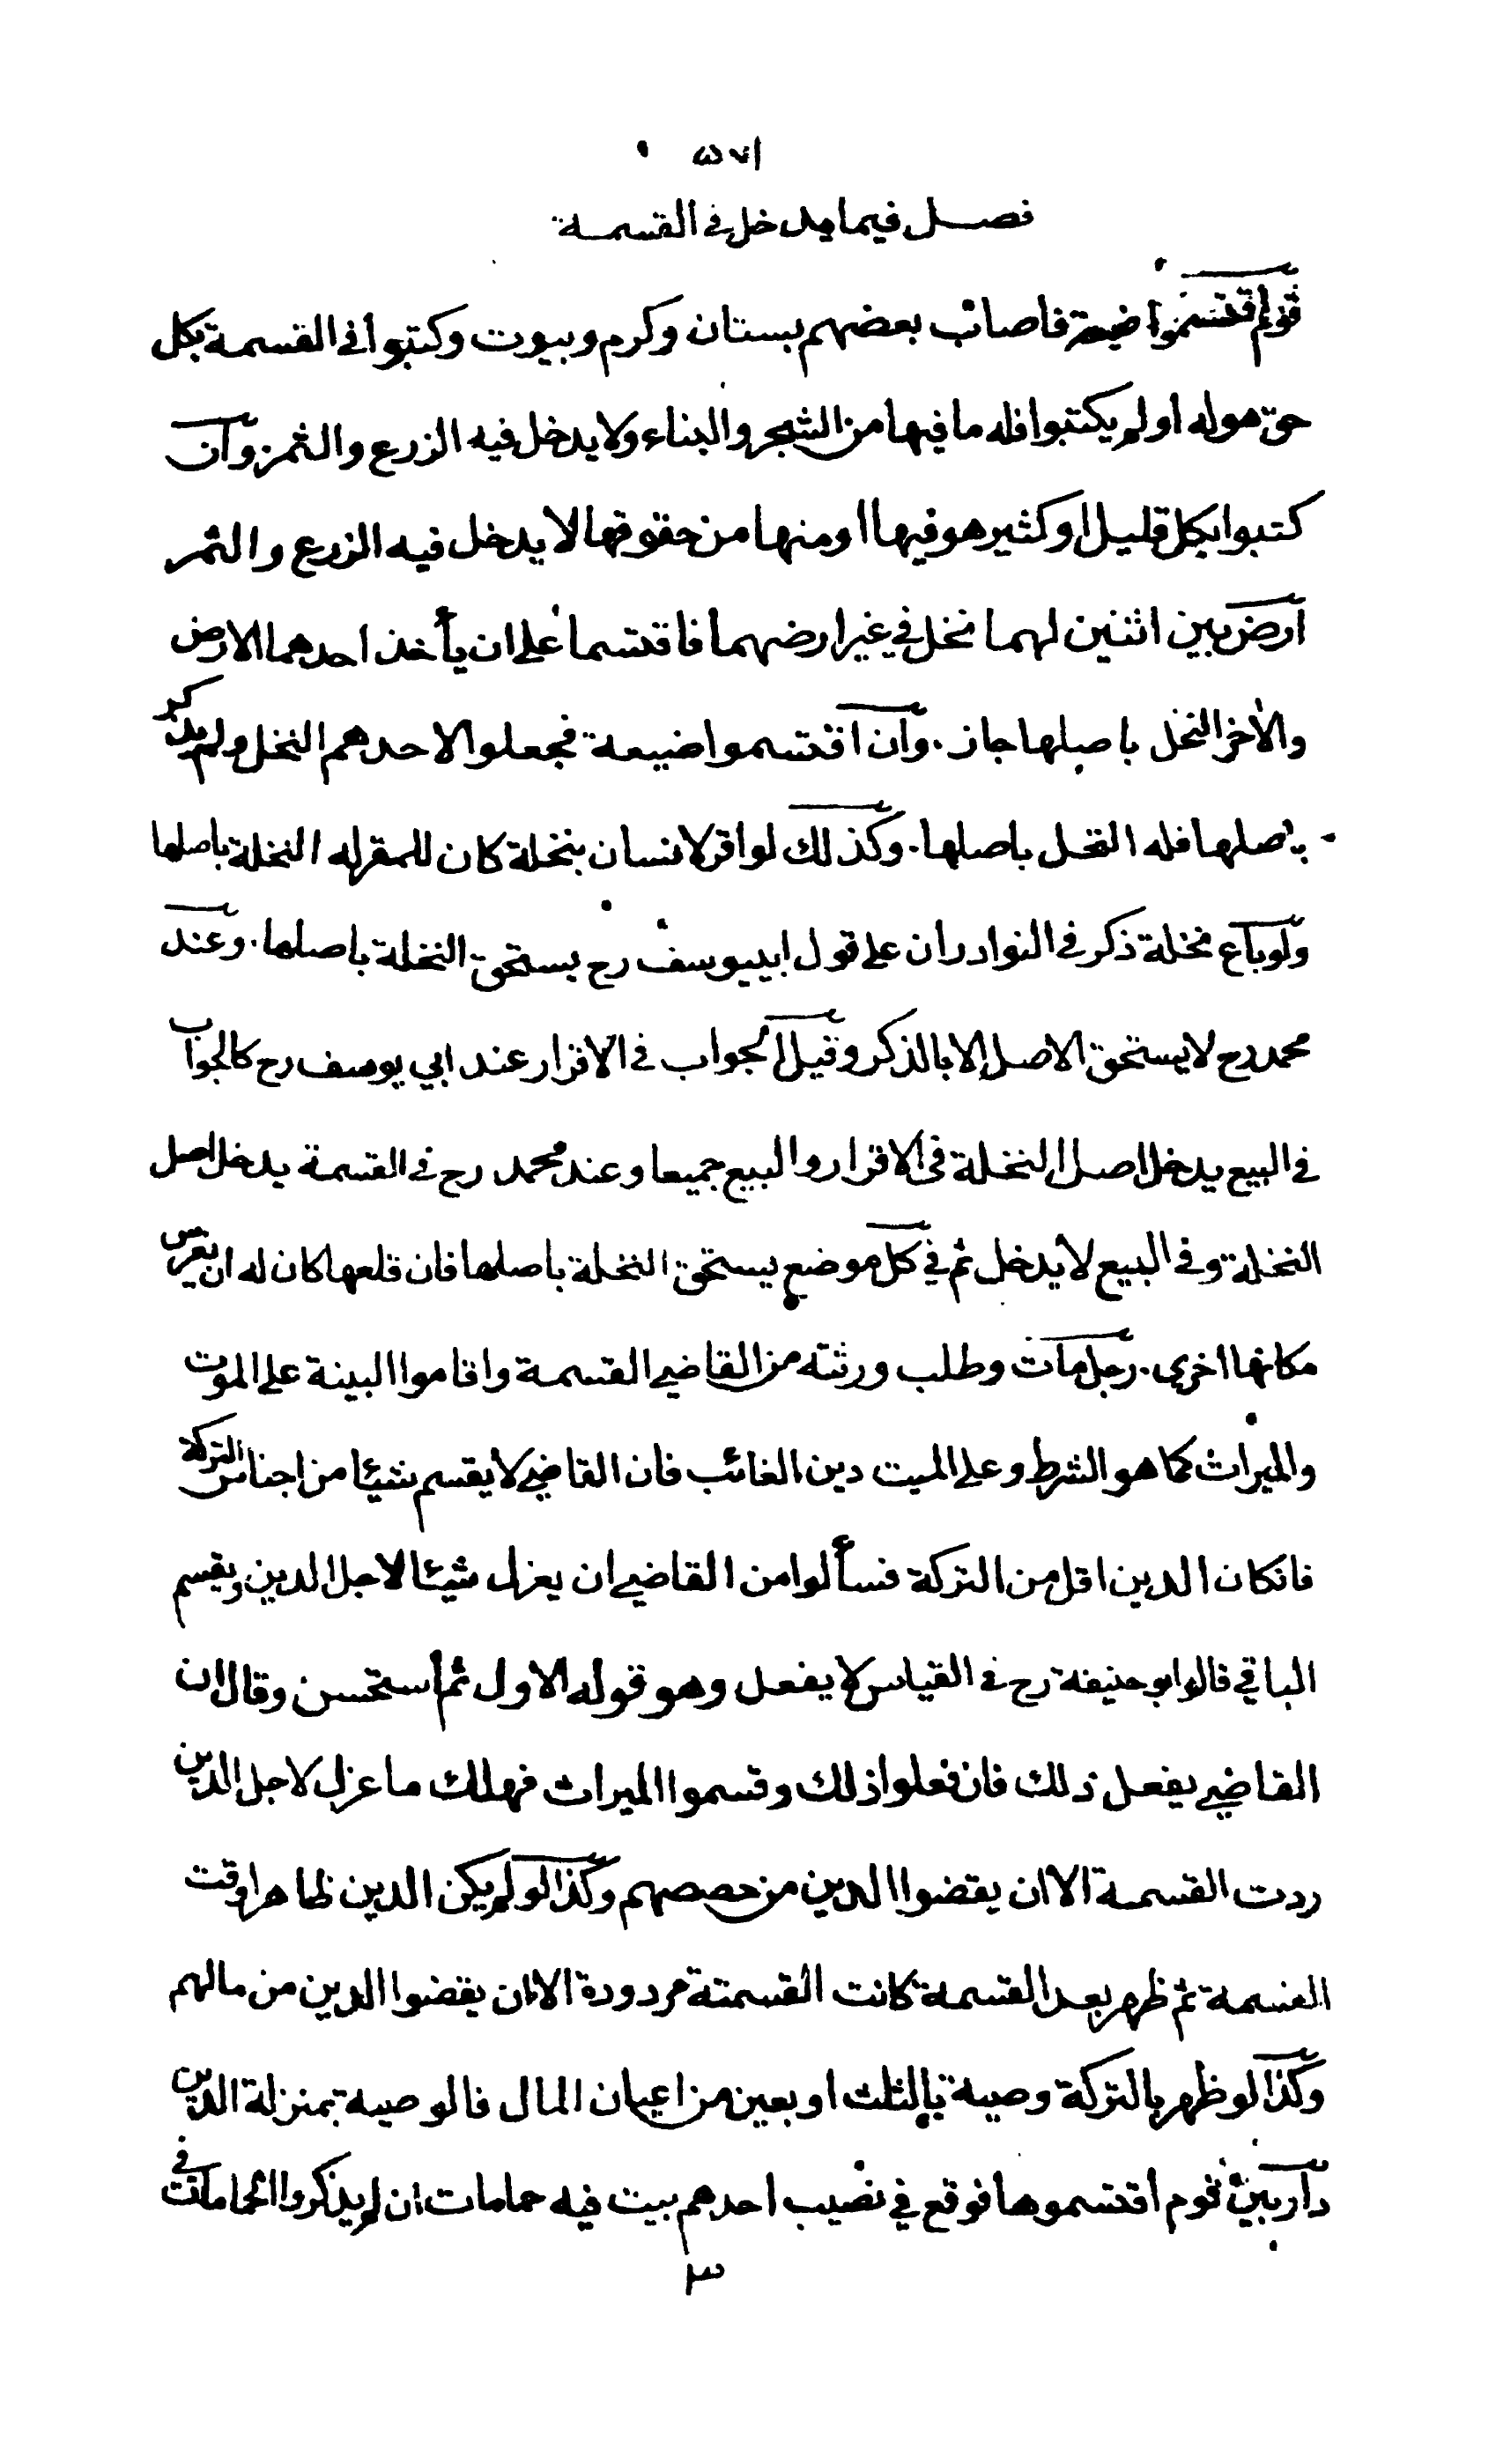 ٥٧١
فصل فيما يدخل في القسمة
قوم اقتسموا ضيعة فاصاب بعضهم بستان وكرم وبيوت وكتبوا في القسمة بكل
حق هو له او لم يكتبوا فله ما فيها من الشجر والبناء ولا يدخل فيه الزرع والثمر وان
كتبوا بكل قليل او كثير هو فيها او منها من حقوقها لا يدخل فيه الزرع والثمر
ارض بين اثنين لهما نخل في غير ارضهما فاقتسما على ان يأخذ احدهما الارض
والاخر النخل باصلها جاز . وان اقتسموا ضيعة فجعلوا لاحدهم النخل ولم يذكر
باصلها فله النخل باصلها . وكذلك لو اقر لانسان بنخلة كان للمقر له النخلة باصلها
ولو باع نخلة ذكر في النوادر ان على قول ابييوسف رح يستحق النخلة باصلها . وعند
محمد رح لا يستحق الاصل الا بالذكر وقيل الجواب في الاقرار عند ابي يوسف رح كالجواب
في البيع يدخل اصل النخلة في الاقرار والبيع جميعا وعند محمد رح في القسمة يدخل اصل
النخلة وفي البيع لا يدخل ثم في كل موضع يستحق النخلة باصلها فان قلعها كان له ان يغرس
مكانها اخرى . رجل مات وطلب ورثته من القاضي القسمة واقاموا البينة على الموت
والميراث كما هو الشرط وعلى الميت دين الغائب فان القاضي لا يقسم شيئا من اجناس التركة
فانكان الدين اقل من التركة فسألوا من القاضي ان يعزل شيئا لاجل الدين ويقسم
الباقي قال ابو حنيفة رح في القياس لا يفعل وهو قوله الاول ثم استحسن وقال ان
القاضي يفعل ذلك فان فعلوا ذلك وقسموا الميراث فهلك ما عزل لاجل الدين
ردت القسمة الا ان يقضوا الدين من حصصهم وكذا لو لم يكن الدين ظاهرا وقت
القسمة ثم ظهر بعد القسمة كانت القسمتة مردودة الا ان يقضوا الدين من مالهم
وكذا لو ظهر بالتركة وصية بالثلث او بعين من اعيان المال فالوصية بمنزلة الدين
دار بين قوم اقتسموها فوقع في نصيب احدهم بيت فيه حمامات ان لم يذكروا الحمامات في
٣